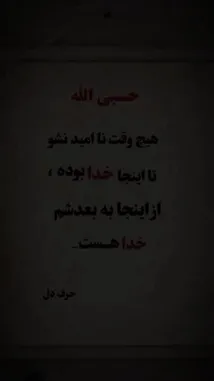 حسبی الله
هیچ وقت نا امید نشو
تا اینجا خدا بوده ،
از اینجا به بعدشم
خدا هست..
حرف دل